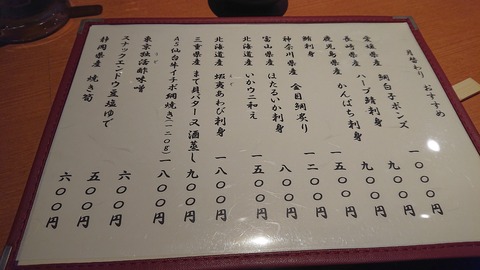 月替わり おすすめ
鯛白子ポンズ 一〇〇〇円
愛媛県産 ハーブ鯖刺身 九〇〇円
長崎県産 かんぱち刺身 九〇〇円
鹿児島県産 一五〇〇円
鮪刺身 一二〇〇円
神奈川県産 金目鯛炙り 八〇〇円
富山県産 ほたるいか刺身
北海道産 いかウニ和え 一五〇〇円
北海道産 蝦夷あわび刺身 一八〇〇円
三重県産 まて貝バター又酒蒸し 九〇〇円
A5仙台牛イチボ網焼き(一二〇g) 一八〇〇円
東京独活酢味噌 六〇〇円
スナックエンドウ豆塩ゆで 五〇〇円
静岡県産 焼き筍 六〇〇円